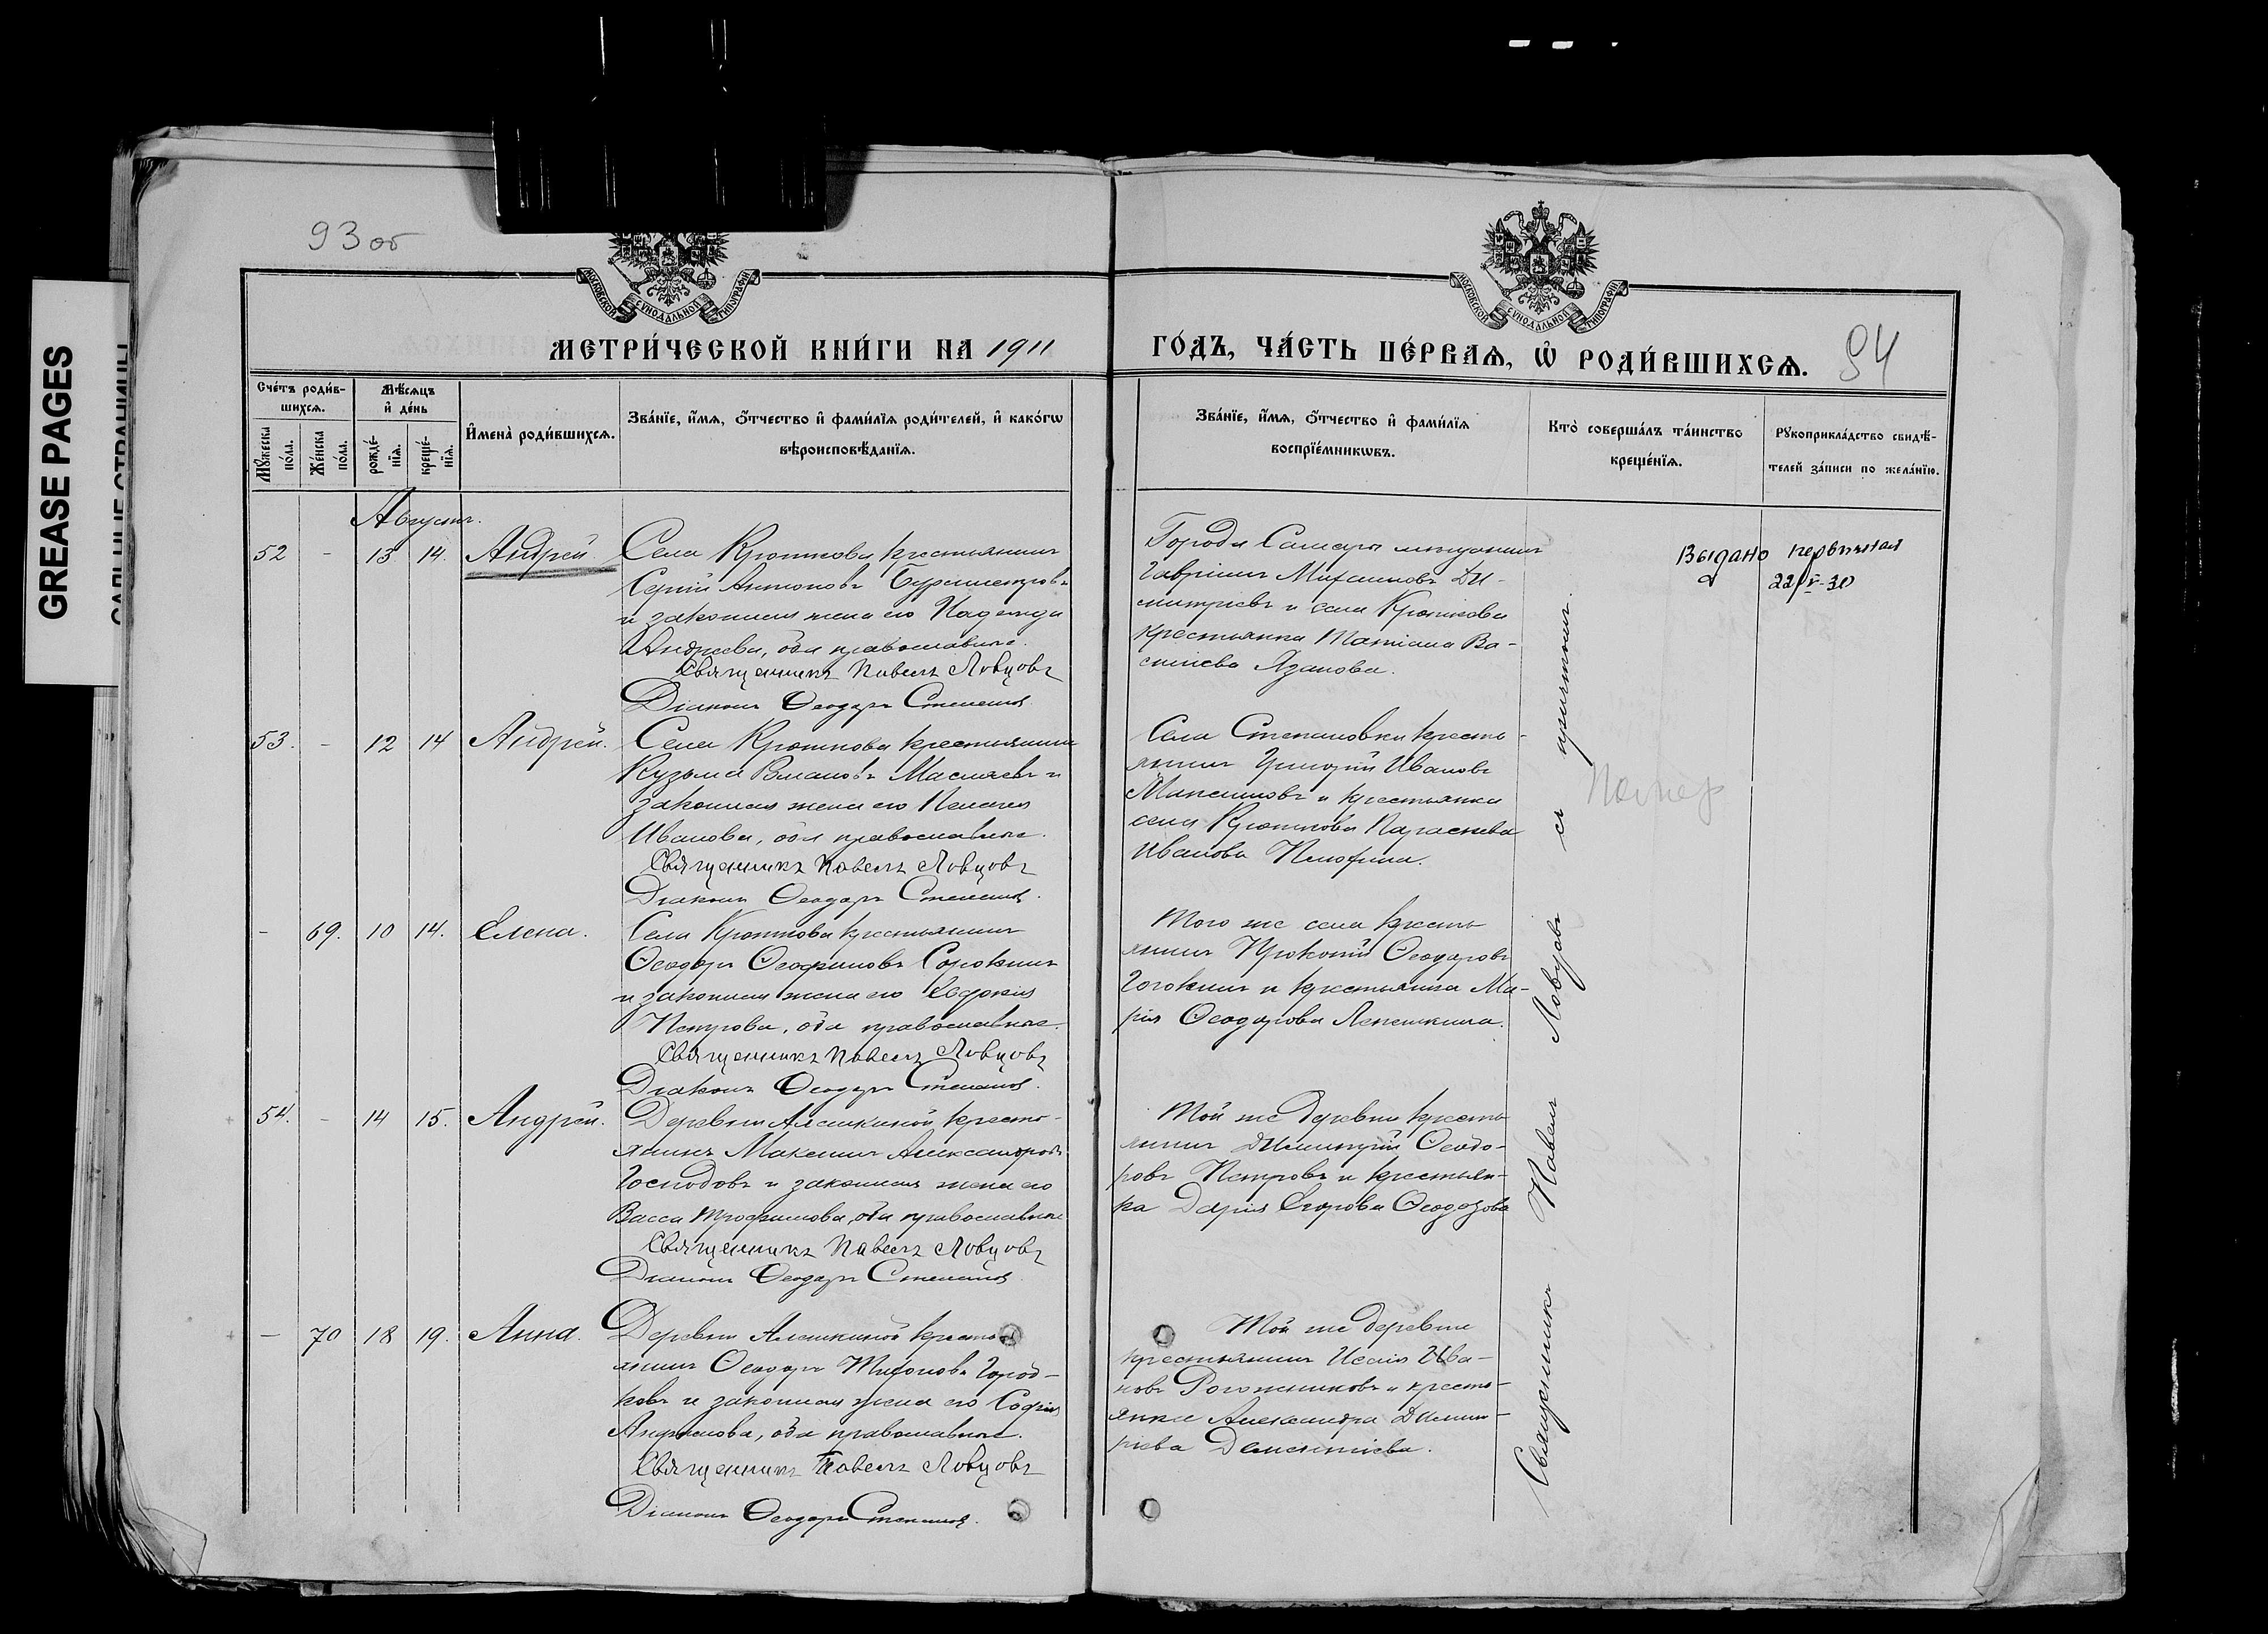 GREASE PAGES
93 об
МОСКОВСКОЙ СѴНОДАЛЬНОЙ ТИПОГРАФІИ
МОСКОВСКОЙ СѴНОДАЛЬНОЙ ТИПОГРАФІИ
МЕТРИ́ЧЕСКОЙ КНИ́ГИ НА 1911
ГО́ДЪ, ЧА́СТЬ ПЕ́РВАѦ, Ѡ҆ РОДИ́ВШИХСѦ.
94
Сче́тъ роди́в-
шихсѧ.
Мꙋ́жеска по́ла.
Же́нска по́ла.
Мѣ́сѧцъ
и҆ де́нь
рожде́-
нїѧ.
креще́-
нїѧ.
И҆мена̀ роди́вшихсѧ.
Зва́нїе, и҆́мѧ, ѻ҆́тчество и҆ фами́лїѧ роди́телей, и҆ како́гѡ
вѣроисповѣ́данїѧ.
Зва́нїе, и҆́мѧ, ѻ҆́тчество и҆ фами́лїѧ
воспрїе́мникѡвъ.
Кто̀ соверша́лъ та́инство
креще́нїѧ.
Рꙋкоприкла́дство свидѣ́-
телей за́писи по жела́нїю.
Августъ.
52 - 13 14. Андрей
Села Кроткова крестьянинъ
Сергій Антоновъ
и законная жена его Надежда
Андреева, оба православные.
Священникъ Павелъ Ловцовъ
Діаконъ Ѳеодоръ Степановъ
Города Самары мещанинъ
Гавріилъ Михаиловъ Ди-
митріевъ и села Кроткова
крестьянка Татіана Ва-
силіева Язанова.
Выдано первичная
22/V-30
53. - 12 14 Андрей.
Села Кроткова крестьянинъ
Кузьма Маслаевъ и
законная жена его Пелагея
Иванова, оба православные.
Священникъ Павелъ Ловцовъ
Діаконъ Ѳеодоръ Степановъ.
Села Степановки кресть-
янинъ Григорій Ивановъ
Максимовъ и крестьянка
села Кроткова Параскева
Иванова
- 69. 10 14. Елена.
Села Кроткова крестьянинъ
Ѳеодоръ Сорокинъ
и законная жена его Евдокія
Петрова, оба православные.
Священникъ Павелъ Ловцовъ
Діаконъ Ѳеодоръ Степановъ.
Того же села кресть-
янинъ Прокопій Ѳеодоровъ
и крестьянка Ма-
рія Ѳеодорова Лепешкина.
54. - 14 15. Андрей.
Деревни Алешкиной кресть-
янинъ Максимъ Александровъ
Господовъ и законная жена его
Васса Трофимова, оба православные
Священникъ Павелъ Ловцовъ
Діаконъ Ѳеодоръ Степановъ
Той же деревни кресть-
янинъ Димитрій Ѳеодо-
ровъ Петровъ и крестьян-
ка Дарія Егорова
— 70 18 19. Анна.
Деревни Алешкиной кресть-
янинъ Ѳеодоръ Тихоновъ Город-
ковъ и законная жена его Софія
оба православные.
Священникъ Павелъ Ловцовъ
Діаконъ Ѳеодоръ Степановъ.
Той же деревни
крестьянинъ Исаія Ива-
новъ Рогожниковъ и кресть-
янка Александра Димит-
ріева Дементіева.
Священникъ Павелъ Ловцовъ съ причтомъ.